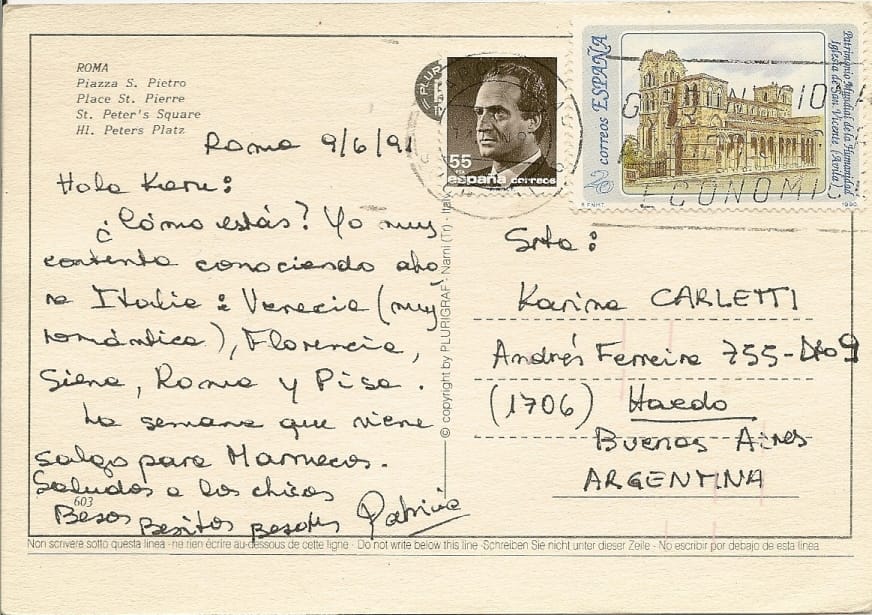 ROMA
Piazza S. Pietro
Place St. Pierre
St. Peter's Square
Hl. Peters Platz
Roma 9/6/91
Hola Karu:
¿Cómo estás? Yo muy
contenta conociendo aho
ra Italia: Venecia (muy
romántica), Florencia,
Siena, Roma y Pisa.
La semana que viene
salgo para Marruecos.
Saludos a los chicos
603
Besos Besitos Besotes Patricia
© copyright by PLURIGRAF - Narni (Tr) - Ital
55
PTA
españa correos
correos ESPAÑA
Patrimonio Mundial de la Humanidad
Iglesia de San Vicente (Avila)
F.N.M.T.
1990
ECONOMI
Srta:
Karina CARLETTI
Andrés Ferreira 755-Dto 9
(1706) Haedo
Buenos Aires
ARGENTINA
Non scrivere sotto questa linea - ne rien écrire au-dessous de cette ligne - Do not write below this line - Schreiben Sie nicht unter dieser Zeile - No escribir por debajo de esta linea